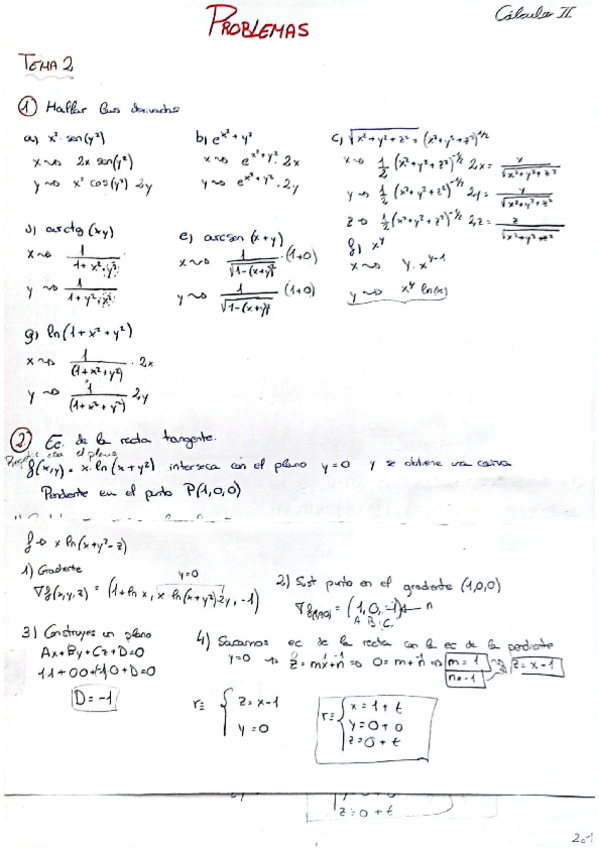 PROBLEMAS
Cálculo II
TEMA 2
① Hallar las derivadas
a) x² sen(y²)
x ⇝ 2x sen(y²)
y ⇝ x² cos(y²) 2y
b) e^(x²+y²)
x ⇝ e^(x²+y²) · 2x
y ⇝ e^(x²+y²) · 2y
c) √(x²+y²+z²) = (x²+y²+z²)^(1/2)
x ⇝ 1/2 (x²+y²+z²)^(-1/2) 2x = x/√(x²+y²+z²)
y ⇝ 1/2 (x²+y²+z²)^(-1/2) 2y = y/√(x²+y²+z²)
z ⇝ 1/2 (x²+y²+z²)^(-1/2) 2z = z/√(x²+y²+z²)
d) arctg(xy)
x ⇝ 1/(1+x²·y²)
y ⇝ 1/(1+y²·x²)
e) arcsen(x+y)
x ⇝ 1/√(1-(x+y)²) · (1+0)
y ⇝ 1/√(1-(x+y)²) (1+0)
f) x^y
x ⇝ y·x^(y-1)
y ⇝ x^y ln(x)
g) ln(1+x²+y²)
x ⇝ 1/(1+x²+y²) · 2x
y ⇝ 1/(1+x²+y²) 2y
② Ec. de la recta tangente.
f(x,y) = x·ln(x+y²) interseca con el plano y=0 y se obtiene una curva
Pendiente en el punto P(1,0,0)
f ⇝ x ln(x+y²-z)
1) Gradiente
y=0
∇f(x,y,z) = (1+ln x, x ln(x+y²)·2y, -1)
2) Sust punto en el gradiente (1,0,0)
∇f(1,0,0) = (1,0,-1) ← n
A B C
3) Construyes un plano
Ax+By+Cz+D=0
1·1+0·0+-1·0+D=0
D=-1
4) Sacamos ec de la recta con la ec de la pendiente
y=0 ⇝ z=mx+n ⇒ 0=m+n ⇒ m=1 ⇝ z=x-1
n=-1
r≡ { z=x-1
y=0
r≡ { x=1+t
y=0+0
z=0+t
z=0+t
2.1